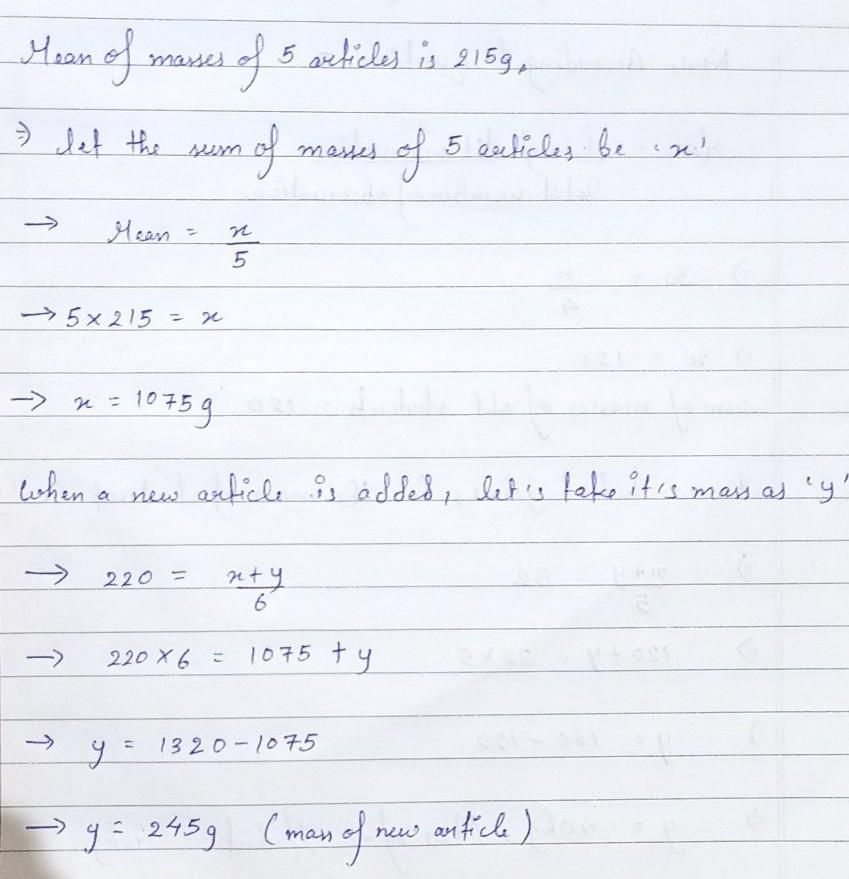 Mean of masses of 5 articles is 215g,
⇒ let the sum of masses of 5 articles be 'x'
→ Mean = x/5
→ 5×215 = x
→ x = 1075g
When a new article is added, let's take it's mass as 'y'
→ 220 = x+y/6
→ 220×6 = 1075 + y
→ y = 1320-1075
→ y = 245g (mass of new article)